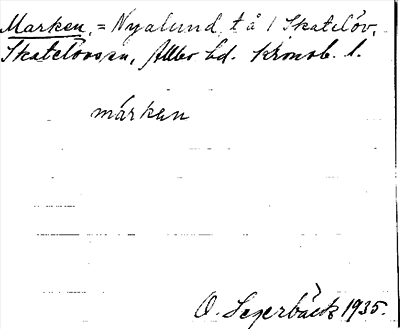 Marken, = Nyalund, t å 1 Skatelöv,
Skatelövs sn, Allbo hd. Kronob. l.
márken
O. Segerbäck 1935.